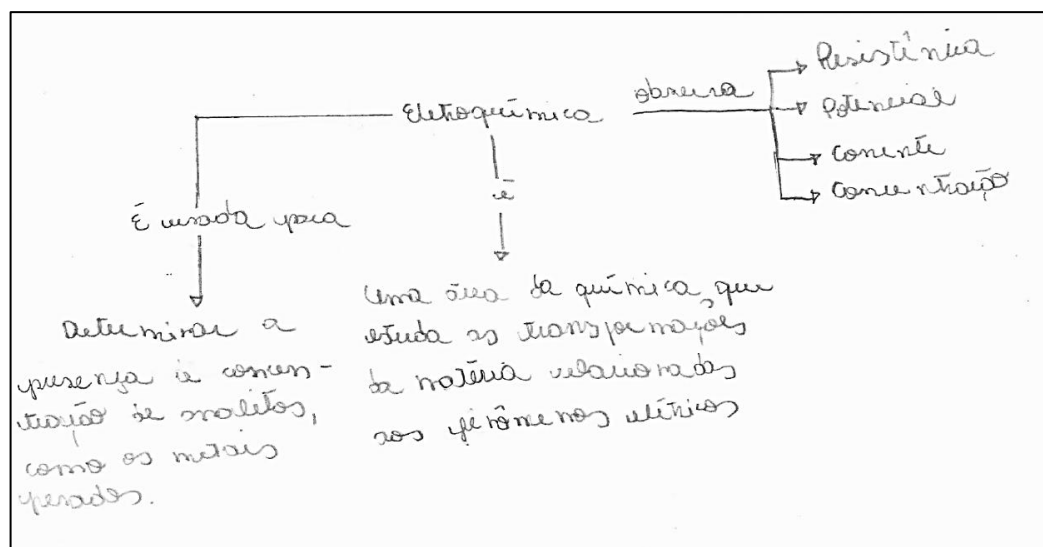 Eletroquímica
observa
Resistência
Potencial
Corrente
Concentração
É usada para
Determinar a
presença e concen-
tração de analitos,
como os metais
pesados.
é
Uma área da química, que
estuda as transformações
da matéria relacionadas
aos fenômenos elétricos